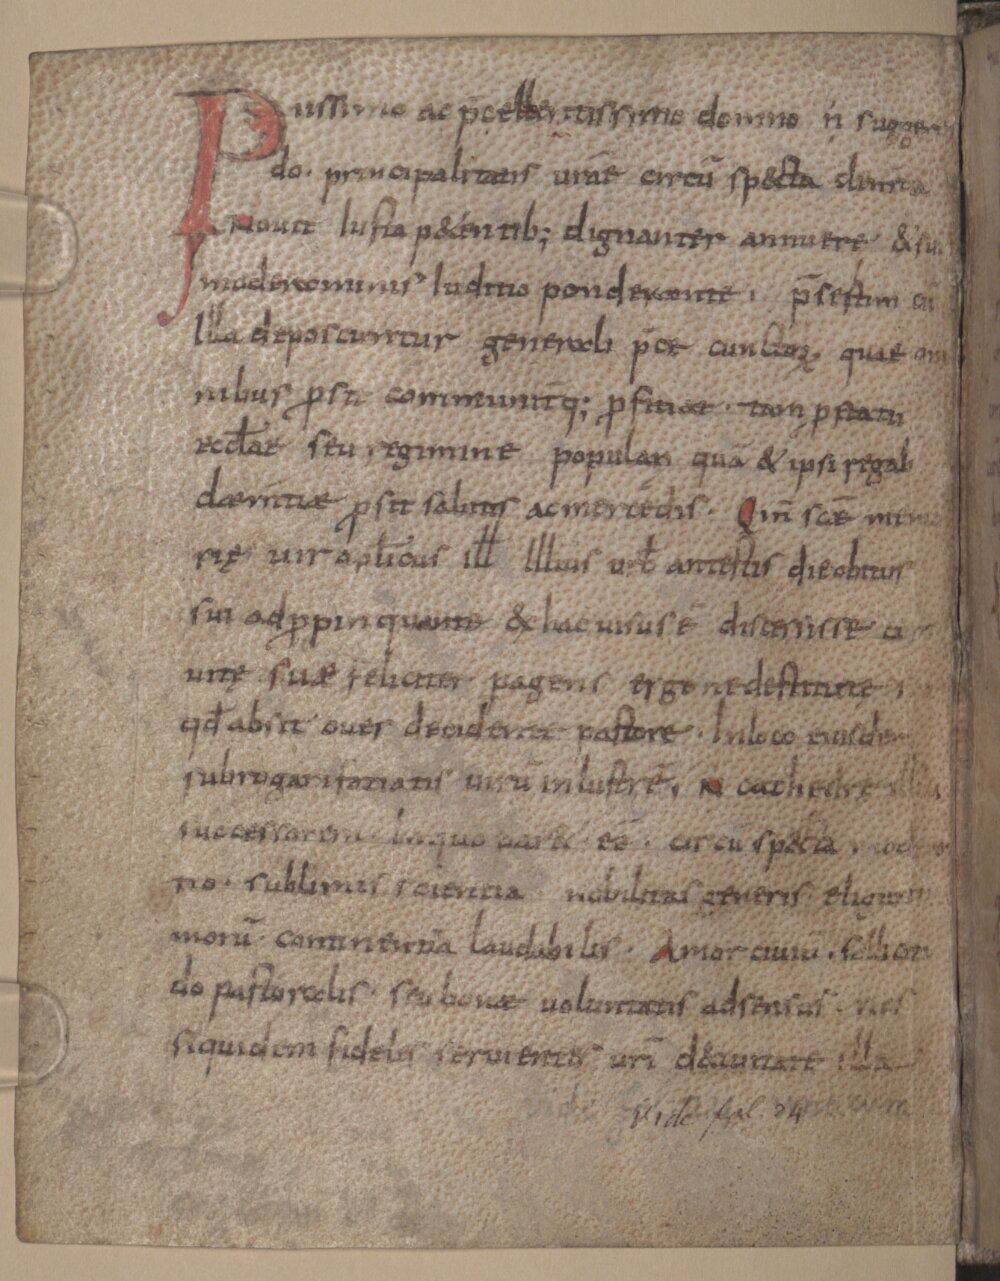 Piissimo ac p̄cellentissimo domno ił sugger&
do. principalitatis urāe circū sp&cta clim&ia
Nouit Iusta p&entib; dignanter annuere &sui
moderaminis Iuditio ponderante. p̄sertim cū
Illa deposcuntur generali p̄ce cunctoꝝ quae om
nibus ꝓsit communitq; ꝓficiat. tam ꝓ statu
eccłae seu regimine popular quā & ipsi regali
clementiae ꝓsit salutis ac mercedis. Qm̄ scē memo
rię uir apłicus ill̄ Illius urb̄ antestis die obitus
sui adꝓpinquante & hac uisus ē discessisse ci
uitę suae feliciter pagens ergo ne destitutae
qđ absit oues decidente pastore. In loco eiusdem
subrogari faciatis uirū inlustrē, N cathedrę illius
successorem In quo par& eē. circū sp&cta
tio. sublimis scientia nobilitas generis elegantia
morū. continentia laudabilis. Amor ciuiū. sollicitu
do pastoralis. seu bonae voluntatis adsensus. nos
siquidem fideles seruientes uri d&ciuitate illa
Vide fol. 24